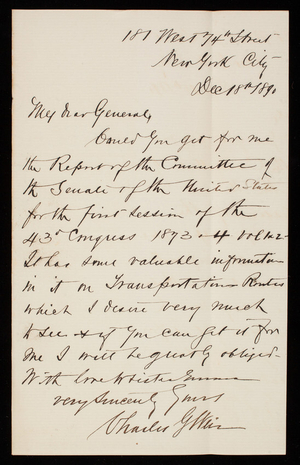 181 West 74th Street
New York City
Dec 18th 1890
My dear General,
Could you get for me
the Report of the Committee of
the Senate of the United States
for the first session of the
43d Congress 1873-4 Vol 1 & 2
It has some valuable information
in it on Transportation Routes
which I desire very much
to see & if you can get it for
me I will be greatly obliged.
With love to sister Emma
very Sincerely Yours
Charles G